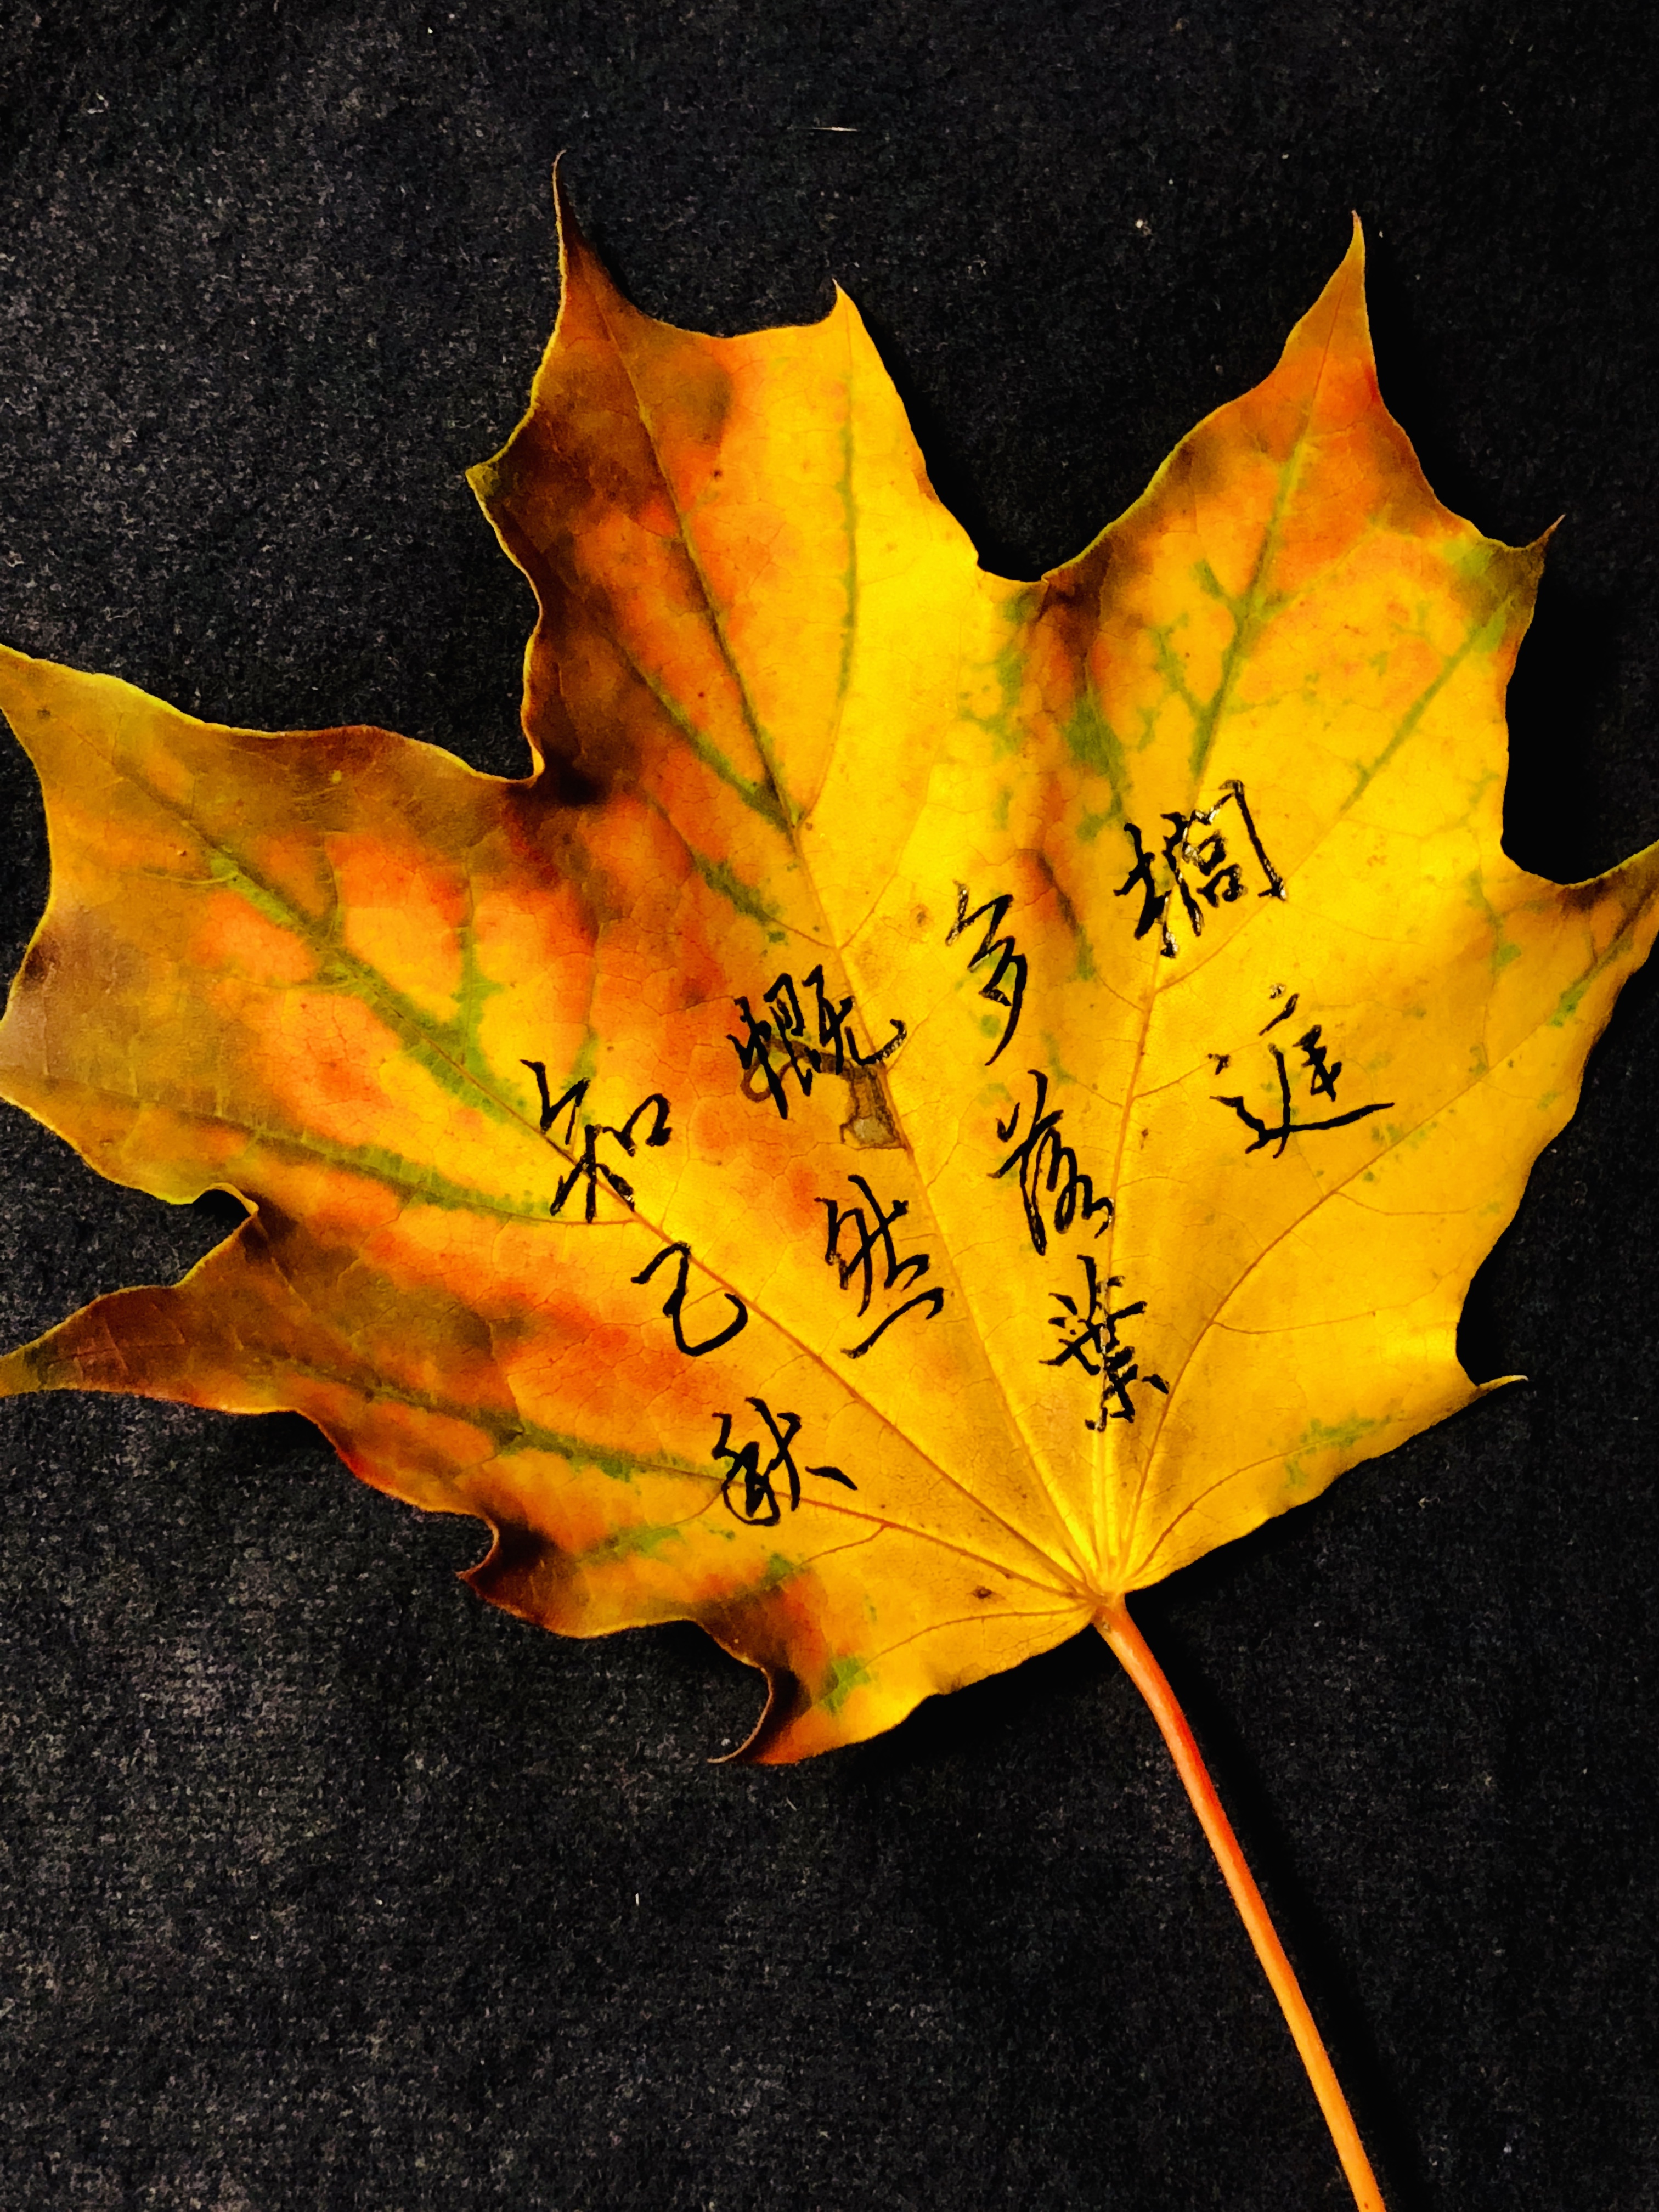 搁庭
多落葉
慨然
知已秋